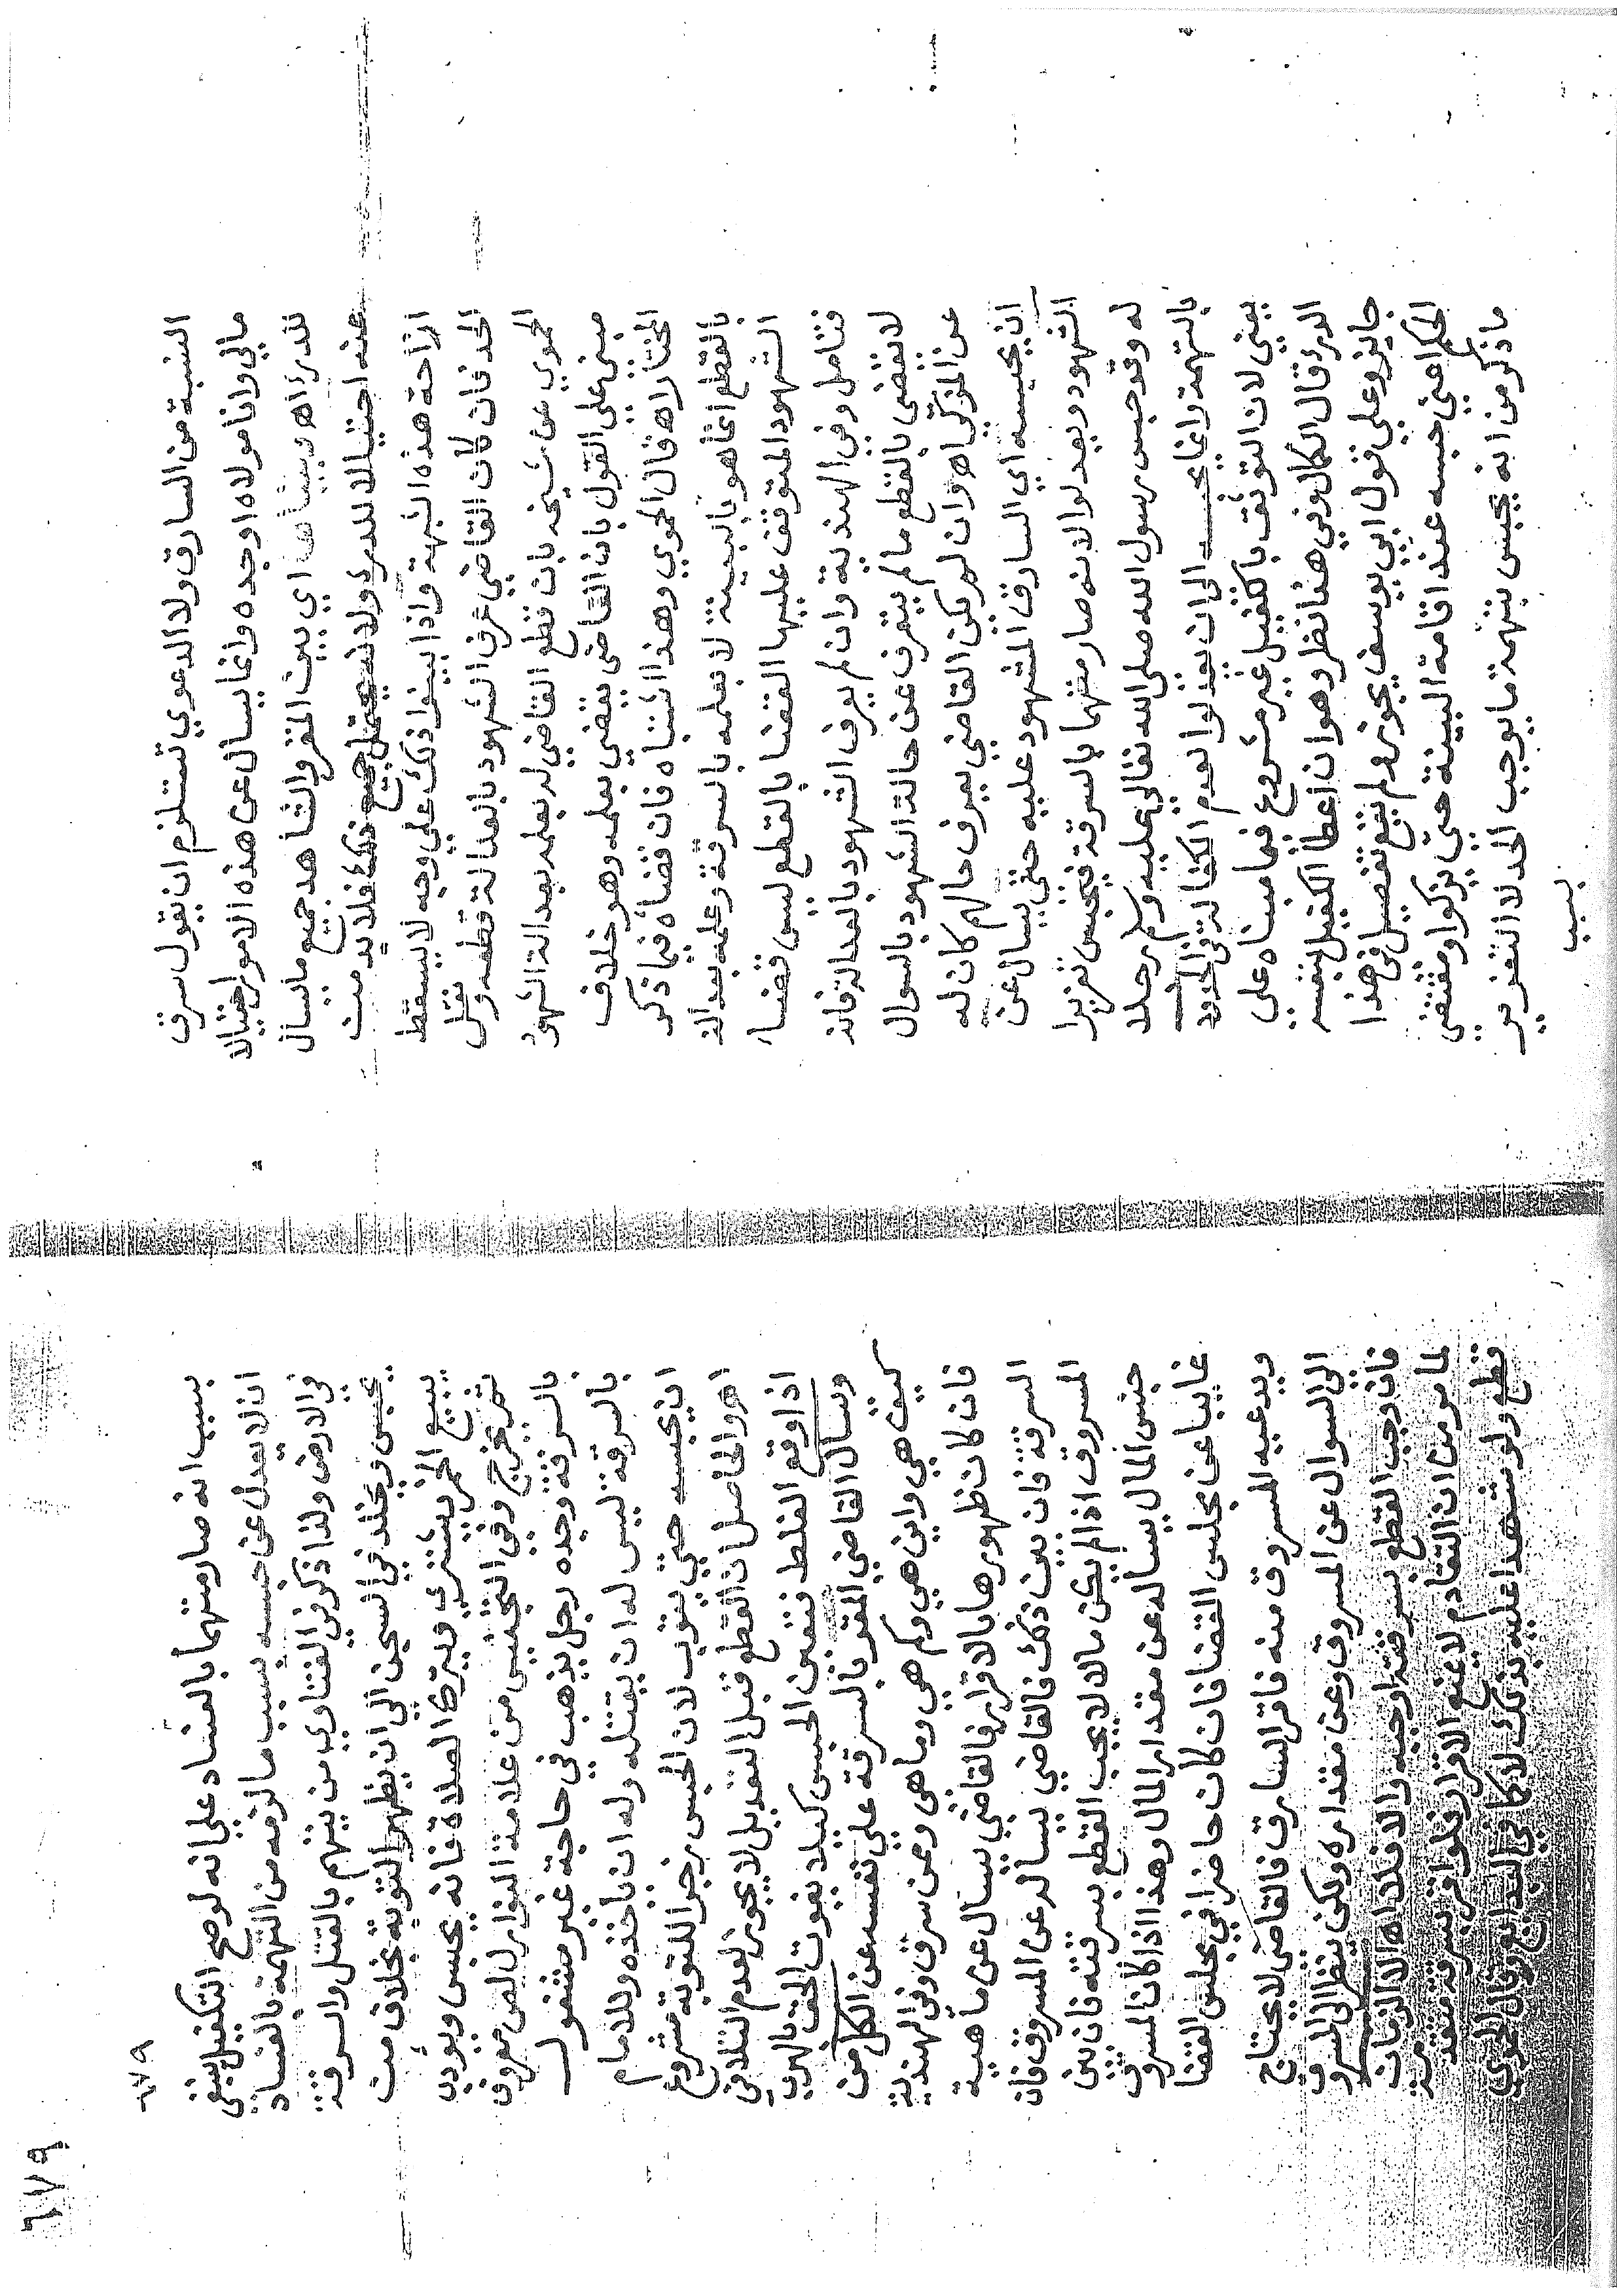 النسبة من السارق ولا الدعوي تستلزم ان يقول سرق
مالي وانا مولاه اوجده وانما يسال عن هذه الامور احتيالا
للدرء اهـ وبيناها اي بين المقر والشاهد جميع ما يسال
عنه احتيالا للدرء ولانه يحتمل جميع ذلك فلا بد من
ازاحة هذه الشبهة واذا بينوا ذلك علي وجه لا يسقط
الحد فان كان القاضي عرف الشهود بالعدالة قطعه ونقل
الحموي عن شيخه بان قطع القاضي له بعلمه بعدالة الشهود
مبني علي القول بان القاضي يقضي بعلمه وهو خلاف
المختار اهـ قال الحموي وهذا اشتباه فان قضاه فيما ذكر
بالقطع انما هو بالبينة لا بعلمه بالسرقة وعلمه بعدالة
الشهود المتوقف عليها القضا بالقطع ليس قضاء
فتامل وفي الهندية وان لم يعرف الشهود بالعدالة فانه
لا يقضي بالقطع ما لم يتعرف عن حالة الشهود بالسوال
عن المزكي اهـ وان لم يكن القاضي يعرف حالهم كان له
ان يحبسه اي السارق المشهود عليه حتي يسال عن
الشهود ويعدلوا لانه صار متهما بالسرقة فيحبس تعزيرا
له وقد حبس رسول الله صلي الله تعالي عليه وسلم رجلا
بالتهمة وانما يحبسه الي ان يعدلوا لعدم الكفالة في الحدود
يعني لان التوثق بالكفيل غير مشروع فيما مبناه علي
الدرء قال الكمال وفي هذا نظر وهو ان اعطا الكفيل بنفسه
جايز وعلي قول ابي يوسف يجوز ولم يقع تفصيل في هذا
الحكم اعني حبسه عند اقامة البينة حتي يزكوا ومقتضي
ما ذكر من انه يحبس بتهمة ما يوجب الحد لا التعزير
لسبب
٦٧٩
٦٧٩
بسبب انه صار متهما بالفساد علي انه لو صح التكفيل ينبغي
ان لا يعدل عن حبسه بسبب ما لزمه من التهمة بالفساد
في الارض ولذا ذكر في الفتاوي من يتهم بالقتل والسرقة
يحبس ويخلد في السجن الي ان يظهر التوبة بخلاف من
يبيع الخمر يشتري ويترك الصلاة فانه يحبس ويودب
ثم يخرج وفي التجنيس من علامة النوازل لص معروف
بالسرقة وجده رجل يذهب في حاجة غير مشغول
بالسرقة ليس له ان يقتله وله ان ياخذه وللامام
ان يحبسه حتي يتوب لان الحبس زجرا للتوبة مشروع
اهـ والحاصل ان القطع قبل التعديل لا يجوز لعدم التلافي
اذا وقع الغلط فتعين الحبس كيلا يفوت الحق بالهروب
وسال القاضي المقر بالسرقة علي نفسه عن الكل من
كيف هي واين هي وكم هي وما هي وممن سرق وفي الهندية
فان كان ظهورها بالاقرار فالقاضي يسال عن ماهية
السرقة فان بين ذلك فالقاضي يساله عن المسروق فان
المسروق اذا لم يكن مالا لا يجب القطع بسرقته فان بين
جنس المال يساله عن مقدار المال وهذا اذا كان المسروق
غايبا عن مجلس القضا فان كان حاضرا في مجلس القضا
ويدعيه المسروق منه فاقر السارق فالقاضي لا يحتاج
الي السوال عن المسروق وعن مقداره ولكن ينظر الي المسروق
فان وجب القطع بسرقته اوجبه والا فلا اهـ الا الزمان
لما مر من ان التقادم لا يمنع الاقرار فلو اقر بسرقة متقدمة
قطع ولو شهدا عليه بذلك لا كما في البدايع وقال الحموي